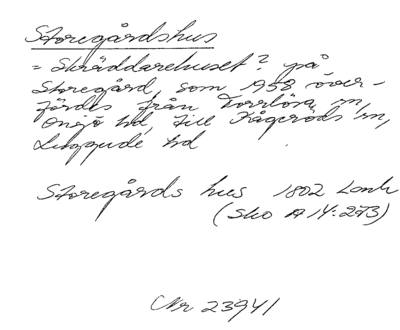 Storegårdshus
= Skräddarehuset? på
Storegård, som 1958 över-
fördes från Torrlösa sn,
Onsjö hd, till Kågeröds sn,
Luggude hd
Storegårds hus 1802 Lantm
(Sko A 14:273)
Nr 23941